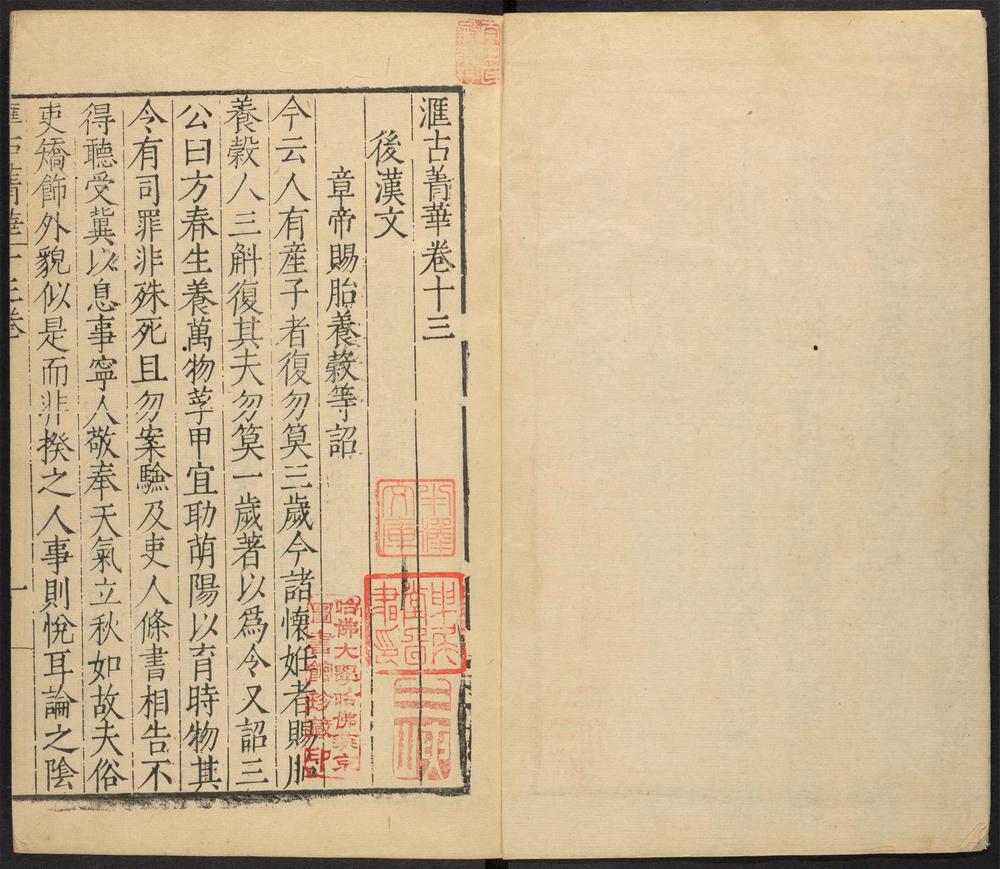 滙古菁華卷十三
後漢文
章帝賜胎養穀等詔
今云人有産子者復勿筭三歲今諸懷妊者賜胎
養穀人三斛復其夫勿筭一歲著以爲令又詔三
公曰方春生養萬物莩甲宜助萌陽以育時物其
令有司罪非殊死且勿案驗及吏人條書相告不
得聽受冀以息事寧人敬奉天氣立秋如故夫俗
吏矯飾外貌似是而非揆之人事則悅耳論之隂
滙古菁華十三卷
一
哈佛大學哈佛燕京
圖書館珍藏印